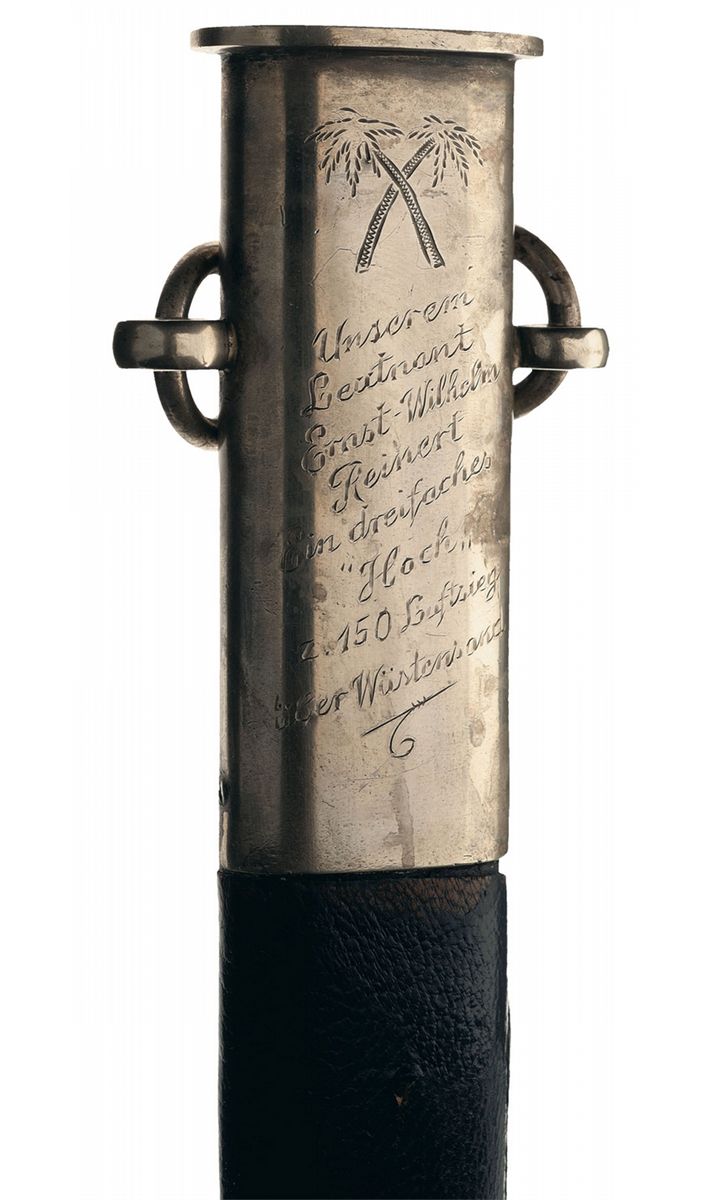 Unserem
Leutnant
Ernst-Wilhelm
Reinert
Ein dreifaches
"Hoch"
z. 150 Luftsieg
über Wüstensand